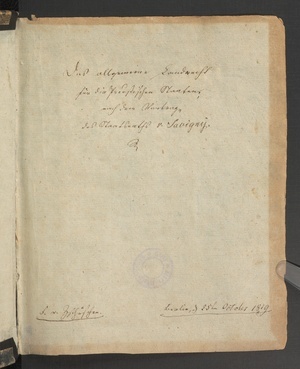 Das allgemeine Landrecht
für die Preußischen Staaten,
nach dem Vortrag
des Staatsraths v. Savigny.
Berlin, d October 1819.